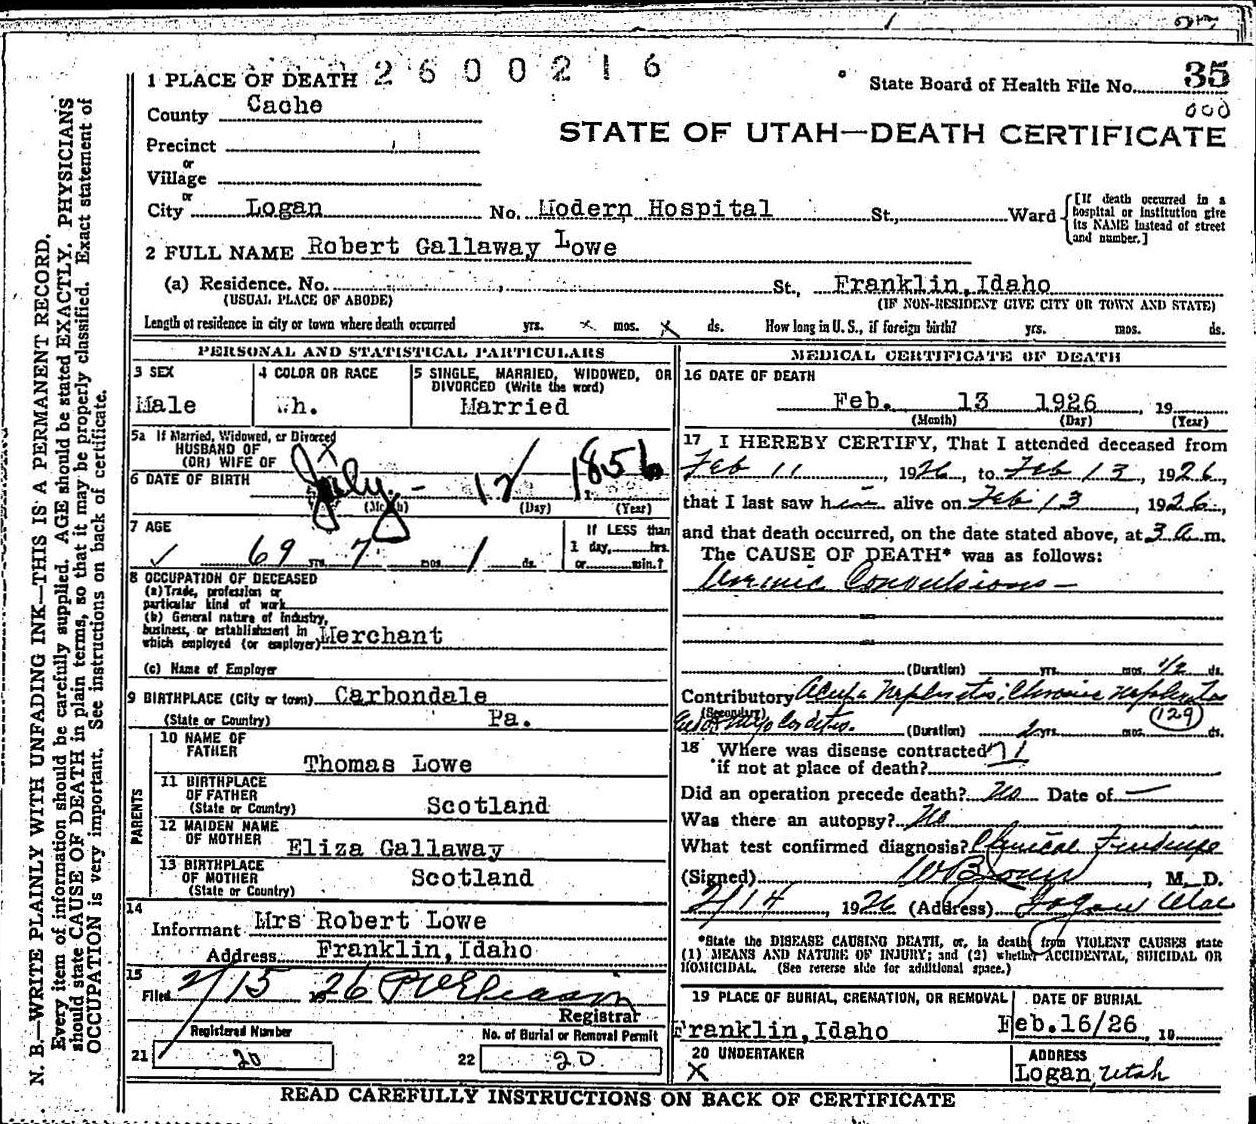 2600216
1 PLACE OF DEATH
State Board of Health File No. 35
000
County Cache
STATE OF UTAH—DEATH CERTIFICATE
Precinct
or
Village
or
City Logan No. Modern Hospital St., Ward
[If death occurred in a hospital or institution give its NAME instead of street and number.]
2 FULL NAME Robert Gallaway Lowe
(a) Residence. No. St., Franklin, Idaho
(USUAL PLACE OF ABODE) (IF NON-RESIDENT GIVE CITY OR TOWN AND STATE)
Length of residence in city or town where death occurred yrs. x mos. x ds. How long in U. S., if foreign birth? yrs. mos. ds.
PERSONAL AND STATISTICAL PARTICULARS
3 SEX
Male
4 COLOR OR RACE
Wh.
5 SINGLE, MARRIED, WIDOWED, OR
DIVORCED (Write the word)
Married
5a If Married, Widowed, or Divorced
HUSBAND OF
(OR) WIFE OF
6 DATE OF BIRTH July - 12 1856
(Month) (Day) (Year)
7 AGE
69 yrs. 7 mos. 1 ds.
If LESS than
1 day, hrs.
or min.?
8 OCCUPATION OF DECEASED
(a) Trade, profession or
particular kind of work
(b) General nature of industry,
business, or establishment in
which employed (or employer) Merchant
(c) Name of Employer
9 BIRTHPLACE (City or town) Carbondale
(State or Country) Pa.
PARENTS
10 NAME OF
FATHER
Thomas Lowe
11 BIRTHPLACE
OF FATHER
(State or Country) Scotland
12 MAIDEN NAME
OF MOTHER Eliza Gallaway
13 BIRTHPLACE
OF MOTHER Scotland
(State or Country)
14
Informant Mrs Robert Lowe
Address Franklin, Idaho
15
Filed 2/15 1926
Registrar
Registered Number
21 20
No. of Burial or Removal Permit
22 20
MEDICAL CERTIFICATE OF DEATH
16 DATE OF DEATH
Feb. 13 1926, 19
(Month) (Day) (Year)
17 I HEREBY CERTIFY, That I attended deceased from
Feb 11 1926, to Feb 13, 1926,
that I last saw him alive on Feb 13, 1926,
and that death occurred, on the date stated above, at 3 a m.
The CAUSE OF DEATH* was as follows:
Uremic Convulsions —
(Duration) yrs. mos. 1/2 ds.
Contributory Acute Nephritis; Chronic Nephritis
(Secondary) Myocarditis. (129)
(Duration) 2 yrs. mos. ds.
18 Where was disease contracted
if not at place of death?
Did an operation precede death? No Date of —
Was there an autopsy? No
What test confirmed diagnosis? Clinical Findings
(Signed) M. D.
2/14, 1926 (Address) Logan Utah
*State the DISEASE CAUSING DEATH, or, in deaths from VIOLENT CAUSES state
(1) MEANS AND NATURE OF INJURY; and (2) whether ACCIDENTAL, SUICIDAL OR
HOMICIDAL. (See reverse side for additional space.)
19 PLACE OF BURIAL, CREMATION, OR REMOVAL
Franklin, Idaho
DATE OF BURIAL
Feb.16/26, 19
20 UNDERTAKER
X
ADDRESS
Logan, Utah
READ CAREFULLY INSTRUCTIONS ON BACK OF CERTIFICATE
N. B.—WRITE PLAINLY WITH UNFADING INK—THIS IS A PERMANENT RECORD.
Every item of information should be carefully supplied. AGE should be stated EXACTLY. PHYSICIANS
should state CAUSE OF DEATH in plain terms, so that it may be properly classified. Exact statement of
OCCUPATION is very important. See instructions on back of certificate.